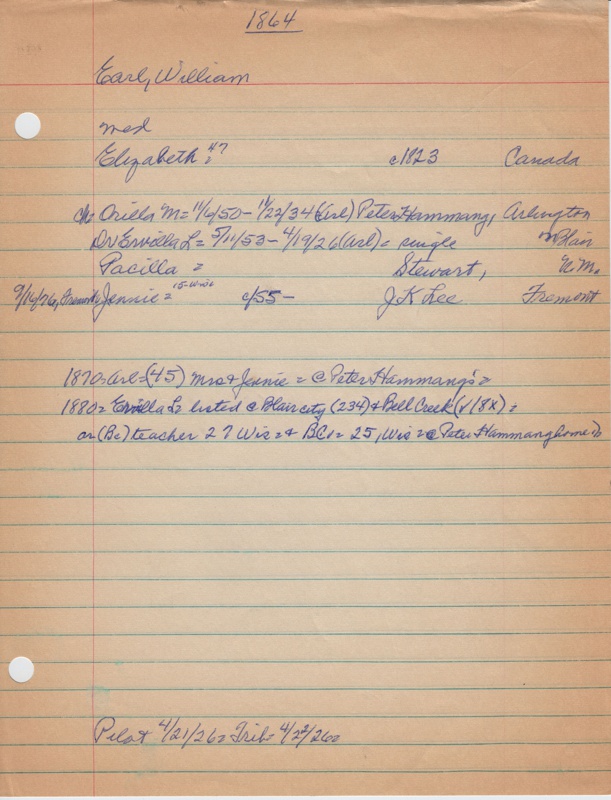 1864
Earl, William
med
Elizabeth = 47 c1823 Canada
ch: Orilla M = 11/6/50 - 11/22/34 (Arl) Peter Hammang, Arlington
Dr Ervilla L = 5/11/53 - 4/19/26 (Arl) = single in Blair
Pacilla = Stewart, N.M.
9/16/76, Fremont Jennie = 15-Wis= c/55 - J K Lee Fremont
1870 = Arl = (45) Mrs & Jennie = @ Peter Hammang's =
1880 = Ervilla L = listed @ Blair city (234) & Bell Creek ( 18x) =
or (Bc) teacher 27 Wis = & BC = 25, Wis = @ Peter Hammang home =
Pilot 4/21/26 = Trib = 4/22/26 =